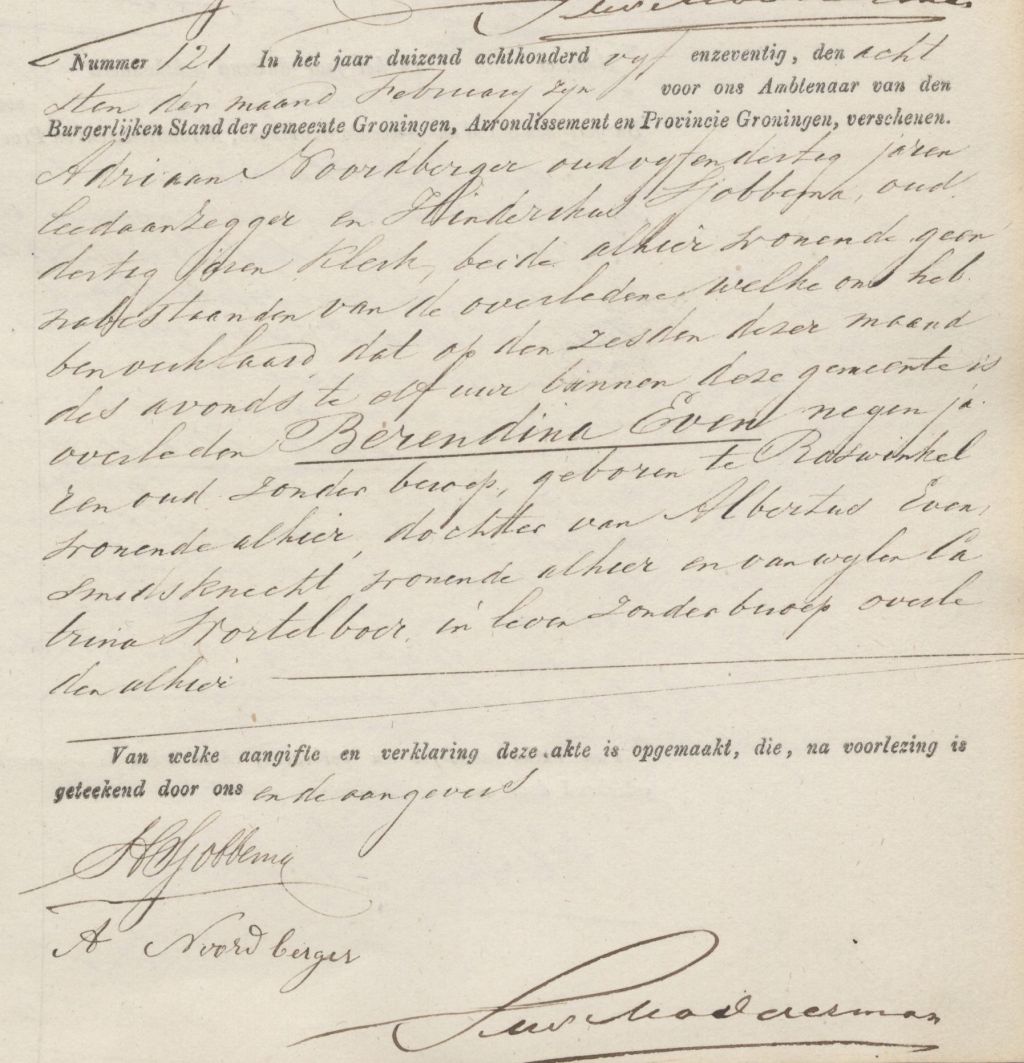 Nummer 121 In het jaar duizend achthonderd vyf enzeventig, den acht
sten der maand February zyn voor ons Ambtenaar van den
Burgerlijken Stand der gemeente Groningen, Arrondissement en Provincie Groningen, verschenen.
Adriaan Noordberger oud vyfendertig jaren
leedaanzegger en Hinderikus Sjobbema, oud
dertig jaren Klerk, beide alhier wonende geen
nabestaanden van de overledene, welke ons heb
ben verklaard, dat op den zesden dezer maand
des avonds te elf uur binnen deze gemeente is
overleden Berendina Even negen ja
ren oud zonder beroep, geboren te Roswinkel
wonende alhier, dochter van Albertus Even,
smidsknecht, wonende alhier en van wylen Ca
trina Wortelboer, in leven zonder beroep overle
den alhier
Van welke aangifte en verklaring deze akte is opgemaakt, die, na voorlezing is
geteekend door ons en de aangevers
HSjobbema
A Noordberger
Modderman